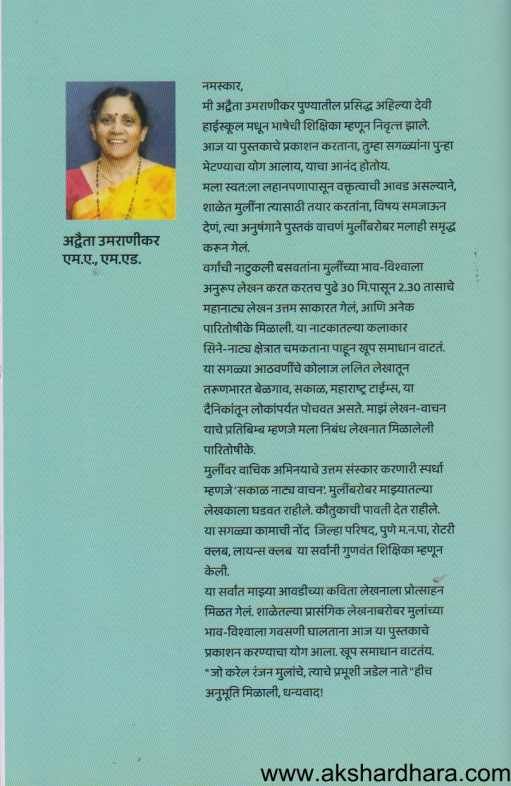 अद्वैता उमराणीकर
एम.ए., एम.एड.
नमस्कार,
मी अद्वैता उमराणीकर पुण्यातील प्रसिद्ध अहिल्या देवी
हाईस्कूल मधून भाषेची शिक्षिका म्हणून निवृत्त झाले.
आज या पुस्तकाचे प्रकाशन करताना, तुम्हा सगळ्यांना पुन्हा
भेटण्याचा योग आलाय, याचा आनंद होतोय.
मला स्वतःला लहानपणापासून वक्तृत्वाची आवड असल्याने,
शाळेत मुलींना त्यासाठी तयार करतांना, विषय समजाऊन
देणं, त्या अनुषंगाने पुस्तकं वाचणं मुलींबरोबर मलाही समृद्ध
करून गेलं.
वर्गाची नाटुकली बसवतांना मुलींच्या भाव-विश्वाला
अनुरूप लेखन करत करतच पुढे 30 मि.पासून 2.30 तासाचे
महानाट्य लेखन उत्तम साकारत गेलं, आणि अनेक
पारितोषीके मिळाली. या नाटकातल्या कलाकार
सिने-नाट्य क्षेत्रात चमकताना पाहून खूप समाधान वाटतं.
या सगळ्या आठवणींचे कोलाज ललित लेखातून
तरूणभारत बेळगाव, सकाळ, महाराष्ट्र टाईम्स, या
दैनिकांतून लोकांपर्यत पोचवत असते. माझं लेखन-वाचन
याचे प्रतिबिम्ब म्हणजे मला निबंध लेखनात मिळालेली
पारितोषीके.
मुलींवर वाचिक अभिनयाचे उत्तम संस्कार करणारी स्पर्धा
म्हणजे 'सकाळ नाट्य वाचन'. मुलींबरोबर माझ्यातल्या
लेखकाला घडवत राहीले. कौतुकाची पावती देत राहीले.
या सगळ्या कामाची नोंद जिल्हा परिषद, पुणे म.न.पा, रोटरी
क्लब, लायन्स क्लब या सर्वांनी गुणवंत शिक्षिका म्हणून
केली.
या सर्वात माझ्या आवडीच्या कविता लेखनाला प्रोत्साहन
मिळत गेलं. शाळेतल्या प्रासंगिक लेखनाबरोबर मुलांच्या
भाव-विश्वाला गवसणी घालताना आज या पुस्तकाचे
प्रकाशन करण्याचा योग आला. खूप समाधान वाटतंय.
"जो करेल रंजन मुलांचे, त्याचे प्रभूशी जडेल नाते "हीच
अनुभूति मिळाली, धन्यवाद!
www.akshardhara.com